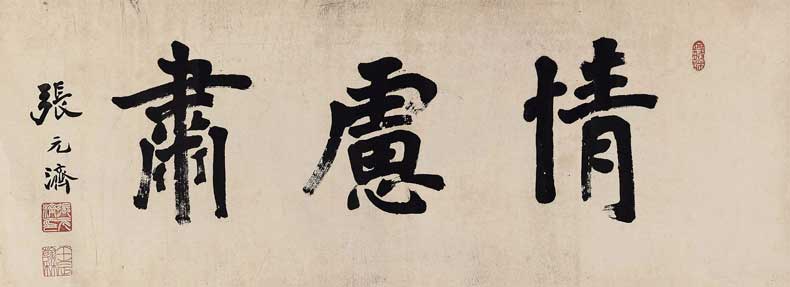 情慮肅
張元濟